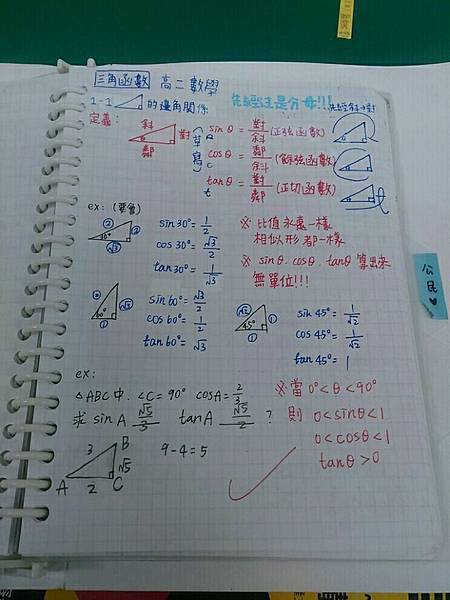 三角函數 高二數學
1-1 的邊角關係
先經過是分母!!!
定義:
斜
對
鄰
θ
(草寫)
sinθ = 對/斜 (正弦函數)
cosθ = 鄰/斜 (餘弦函數)
tanθ = 對/鄰 (正切函數)
ex: (要會)
② ① √3 30°
sin30° = 1/2
cos30° = √3/2
tan30° = 1/√3
※ 比值永遠一樣
相似形都一樣
※ sinθ、cosθ、tanθ 算出來
無單位!!!
② √3 ① 60°
sin60° = √3/2
cos60° = 1/2
tan60° = √3
√2 ① ① 45°
sin45° = 1/√2
cos45° = 1/√2
tan45° = 1
公民
ex:
△ABC中. ∠C=90° cosA=2/3
求 sinA √5/3 tanA √5/2 ?
3 B √5 A 2 C
9-4=5
※ 當 0°<θ<90°
則 0<sinθ<1
0<cosθ<1
tanθ>0